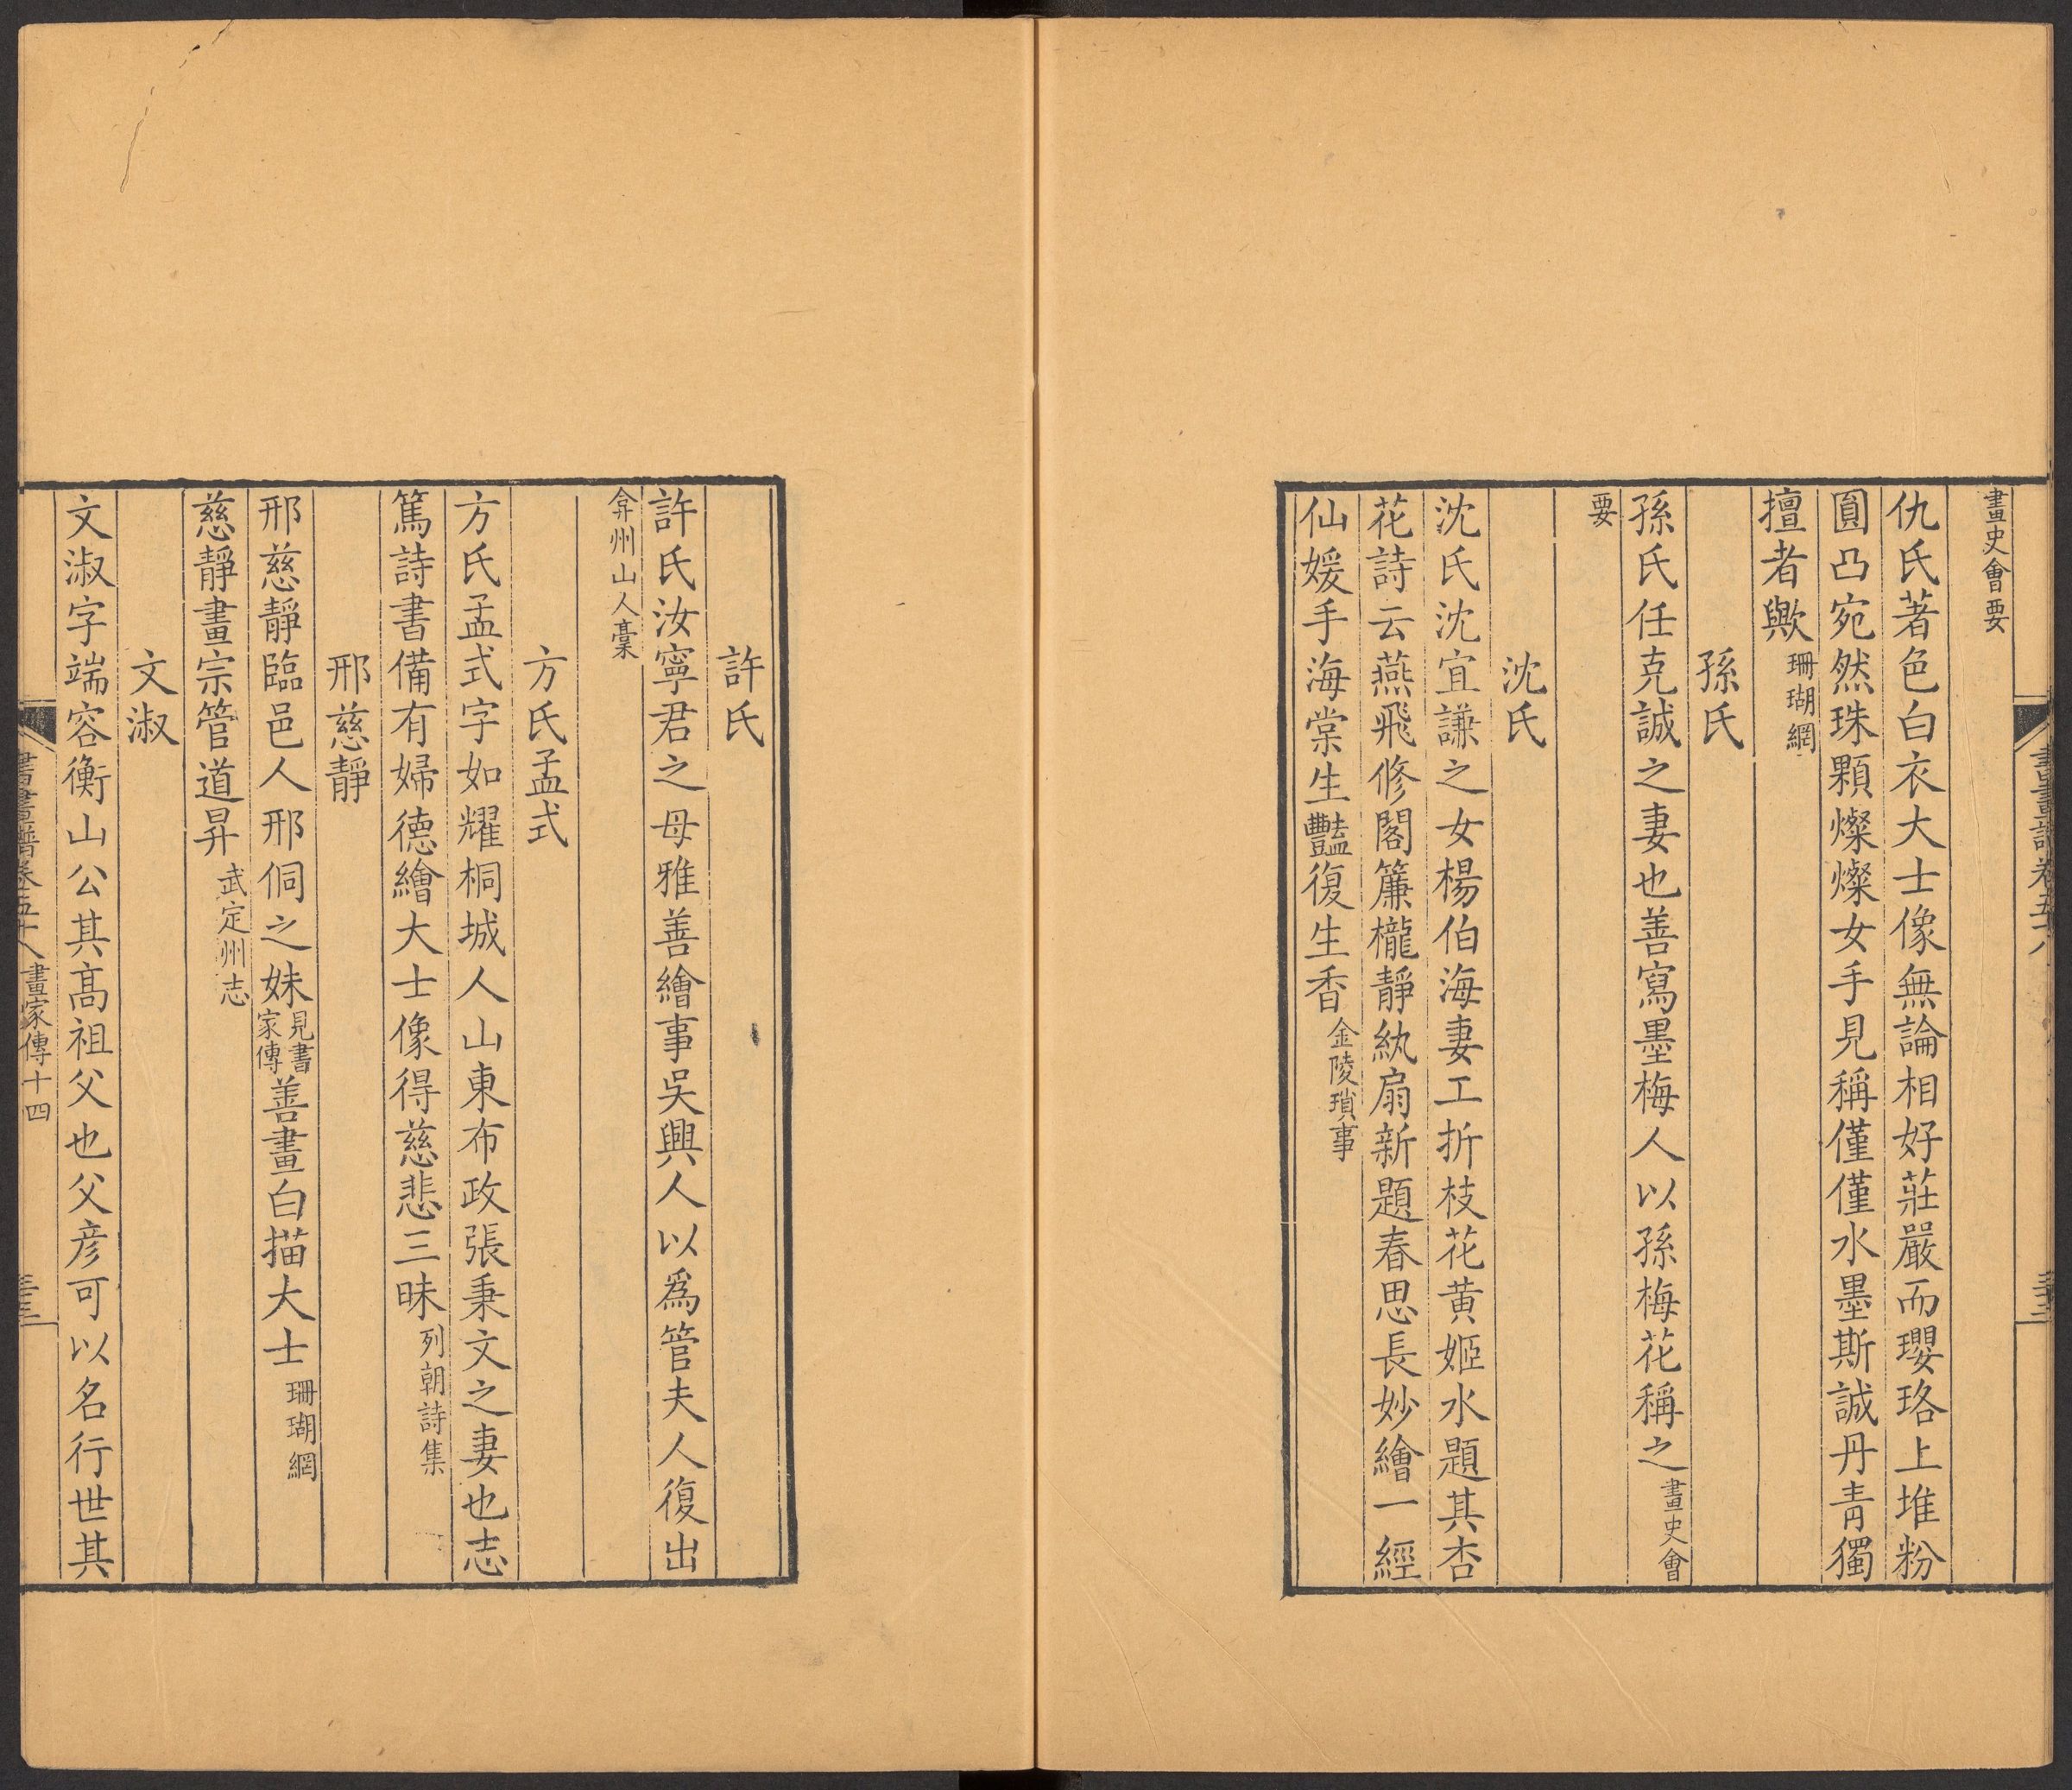 畫史會要
仇氏著色白衣大士像無論相好莊嚴而瓔珞上堆粉
圓凸宛然珠顆燦燦女手見稱僅僅水墨斯誠丹青獨
擅者歟珊瑚網
孫氏
孫氏任克誠之妻也善寫墨梅人以孫梅花稱之畫史會
要
沈氏
沈氏沈宜謙之女楊伯海妻工折枝花黄姬水題其杏
花詩云燕飛修閣簾櫳靜紈扇新題春思長妙繪一經
仙媛手海棠生豔復生香金陵瑣事
許氏
許氏汝寧君之母雅善繪事吳興人以爲管夫人復出
弇州山人稾
方氏孟式
方氏孟式字如耀桐城人山東布政張秉文之妻也志
篤詩書備有婦德繪大士像得慈悲三昧列朝詩集
邢慈靜
邢慈靜臨邑人邢侗之妹見書家傳善畫白描大士珊瑚網
慈靜畫宗管道昇武定州志
文淑
文淑字端容衡山公其高祖父也父彦可以名行世其
書畫譜卷五十八 畫家傳十四